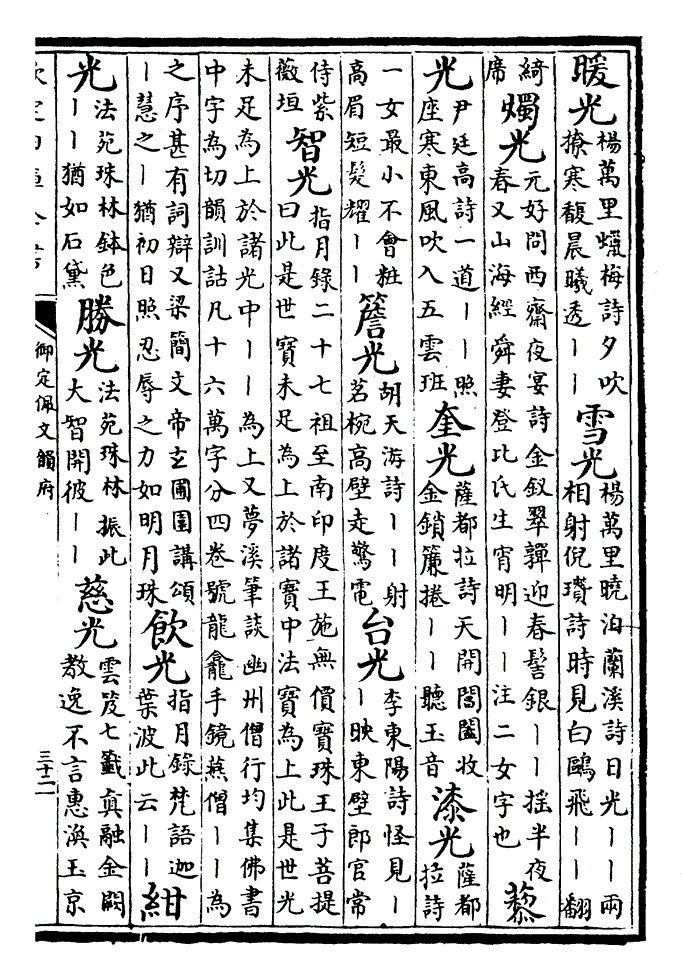 暖光楊萬里蠟梅詩夕吹撩寒馥晨曦透丨丨雪光楊萬里曉泊蘭溪詩日光丨丨兩相射倪瓚詩時見白鷗飛丨丨翻
綺席燭光元好問西齋夜宴詩金釵翠鞾迎春髻銀丨丨搖半夜春又山海經舜妻登比氏生宵明丨丨注二女字也藜
光尹廷高詩一道丨丨照座寒東風吹入五雲班奎光薩都拉詩天開閶闔收金鎖簾捲丨丨聽玉音漆光薩都拉詩
一女最小不會粧高眉短髮耀丨丨簷光胡天海詩丨丨射茗椀高壁走驚電台光李東陽詩怪見丨丨映東壁郎官常
侍紫薇垣智光指月錄二十七祖至南印度王施無價寶珠王子菩提曰此是世寶未足為上於諸寶中法寶為上此是世光
未足為上於諸光中丨丨為上又夢溪筆談幽州僧行均集佛書中字為切韻訓詁凡十六萬字分四卷號龍龕手鏡燕僧丨丨為
之序甚有詞辯又梁簡文帝玄圃園講頌丨慧之丨猶初日照忍辱之力如明月珠飲光指月錄梵語迦葉波此云丨丨紺
光法苑珠林鉢色丨丨猶如石黛勝光法苑珠林振此大智開彼丨丨慈光雲笈七籤真融金闕教逸不言惠渙玉京
欽定四庫全書
御定佩文韻府
三十二